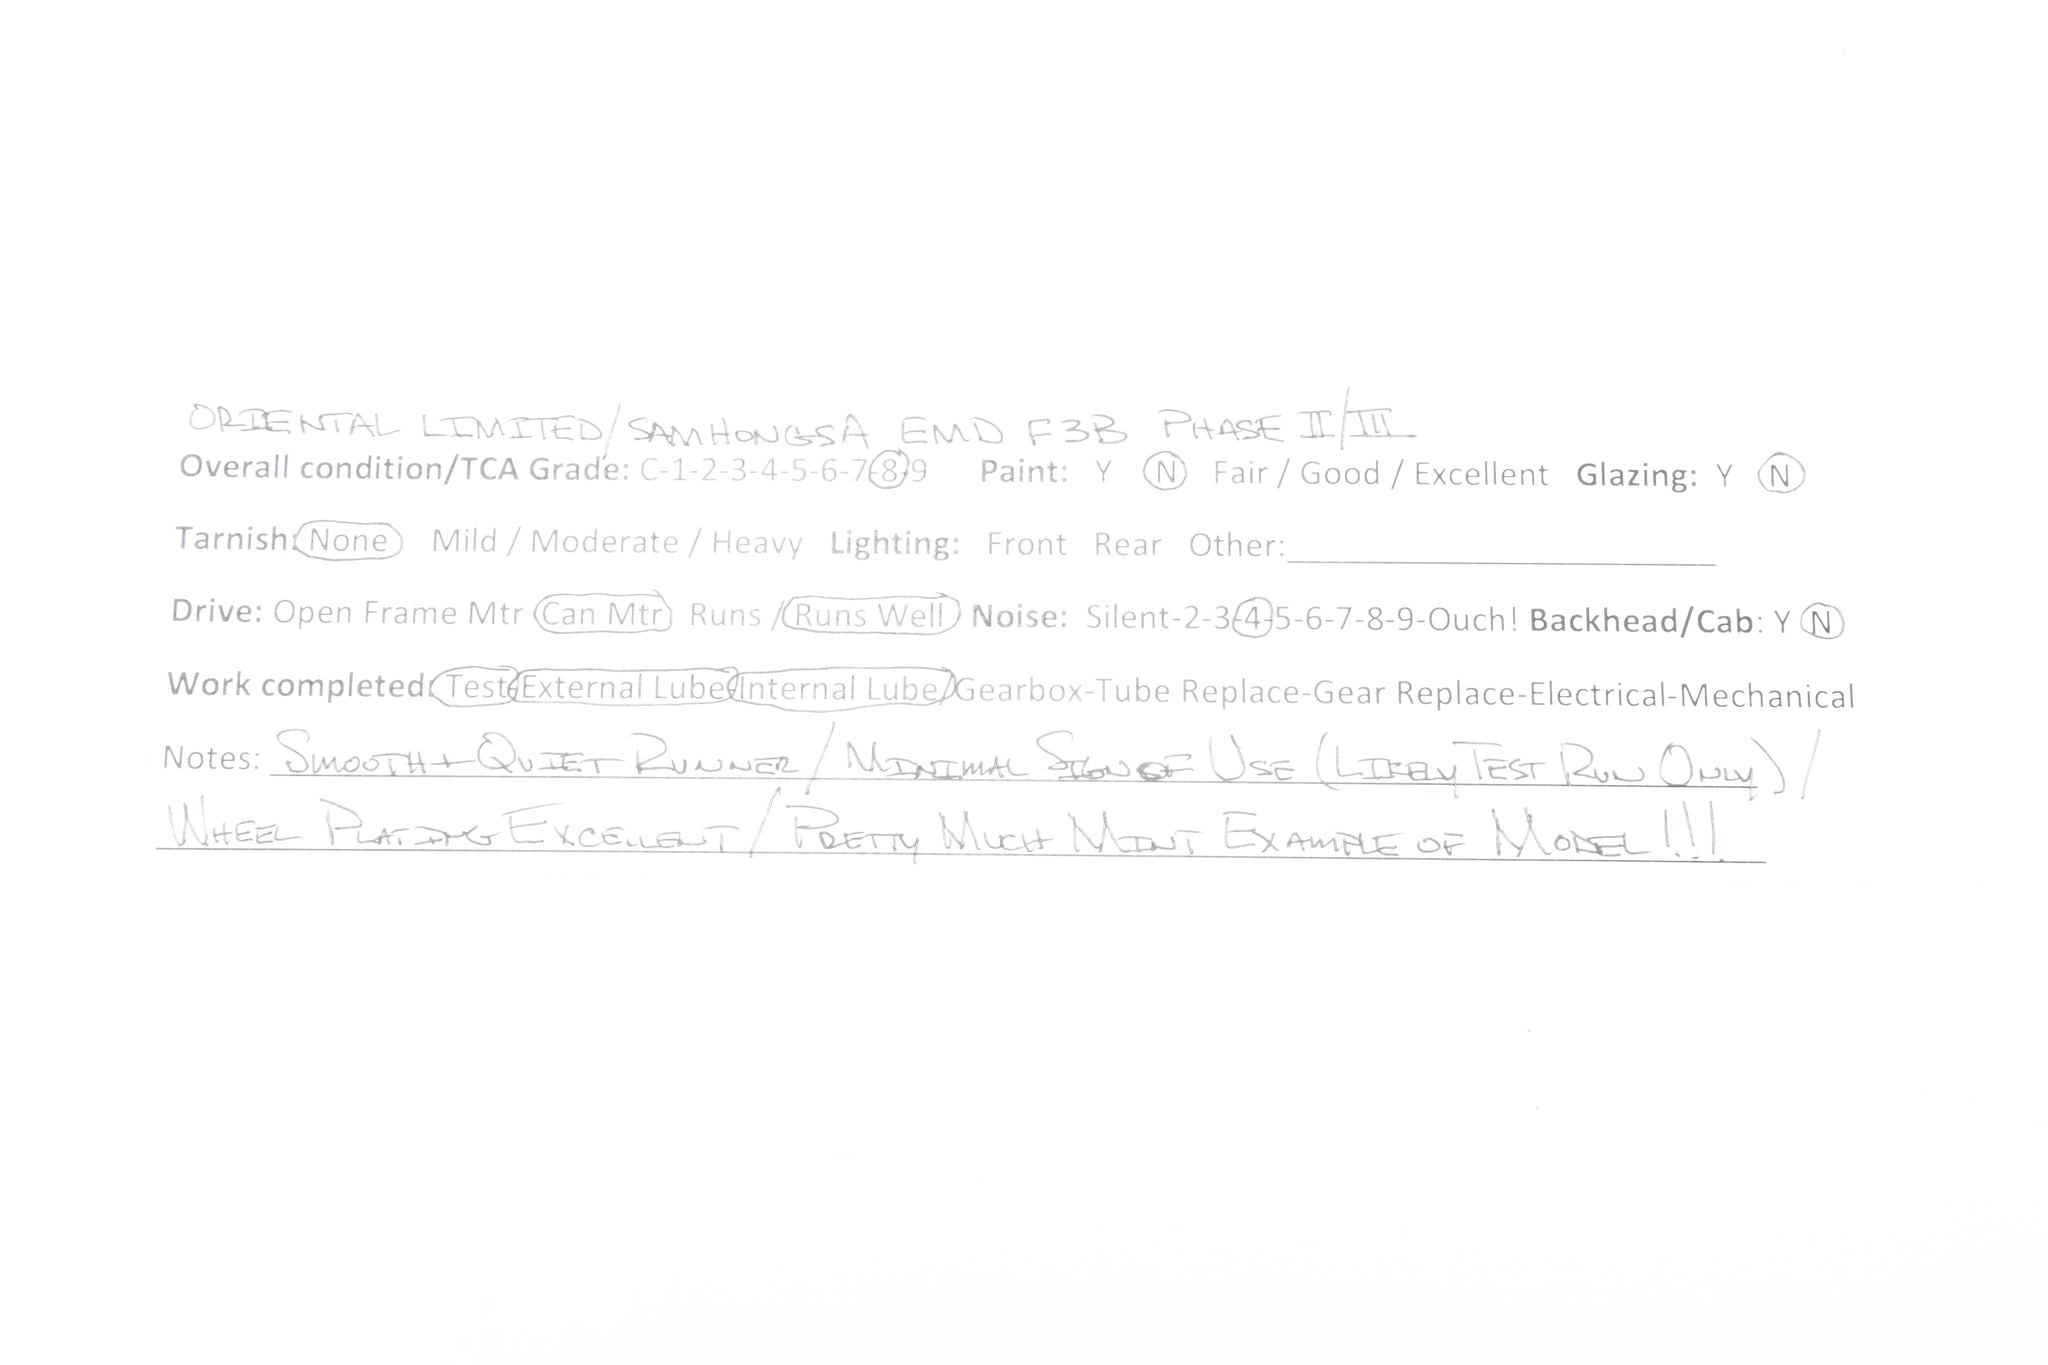 ORIENTAL LIMITED/SAMHONGSA EMD F3B PHASE II/III
Overall condition/TCA Grade: C-1-2-3-4-5-6-7-8-9 Paint: Y N Fair / Good / Excellent Glazing: Y N
Tarnish: None Mild / Moderate / Heavy Lighting: Front Rear Other:
Drive: Open Frame Mtr Can Mtr Runs / Runs Well Noise: Silent-2-3-4-5-6-7-8-9-Ouch! Backhead/Cab: Y N
Work completed: Test/External Lube/Internal Lube/Gearbox-Tube Replace-Gear Replace-Electrical-Mechanical
Notes: SMOOTH + QUIET RUNNER / MINIMAL SIGN OF USE (LIKELY TEST RUN ONLY) /
WHEEL PLATING EXCELLENT / PRETTY MUCH MINT EXAMPLE OF MODEL!!!